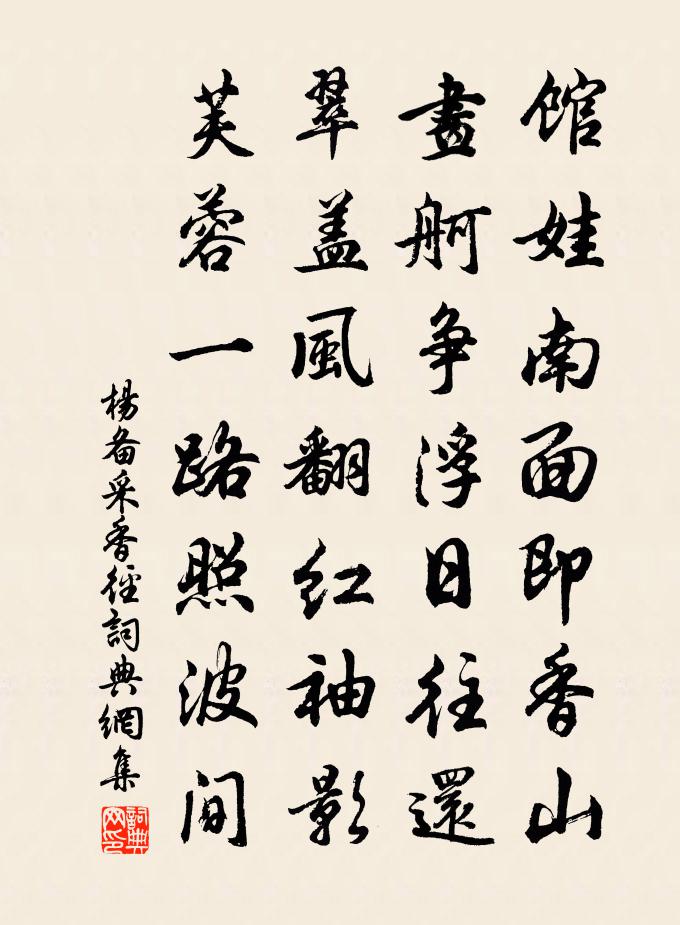 馆娃南面即香山
畫舸争浮日往還
翠盖風翻红袖影
芙蓉一路照波间
楊备采香径詞典網集
詞典网印